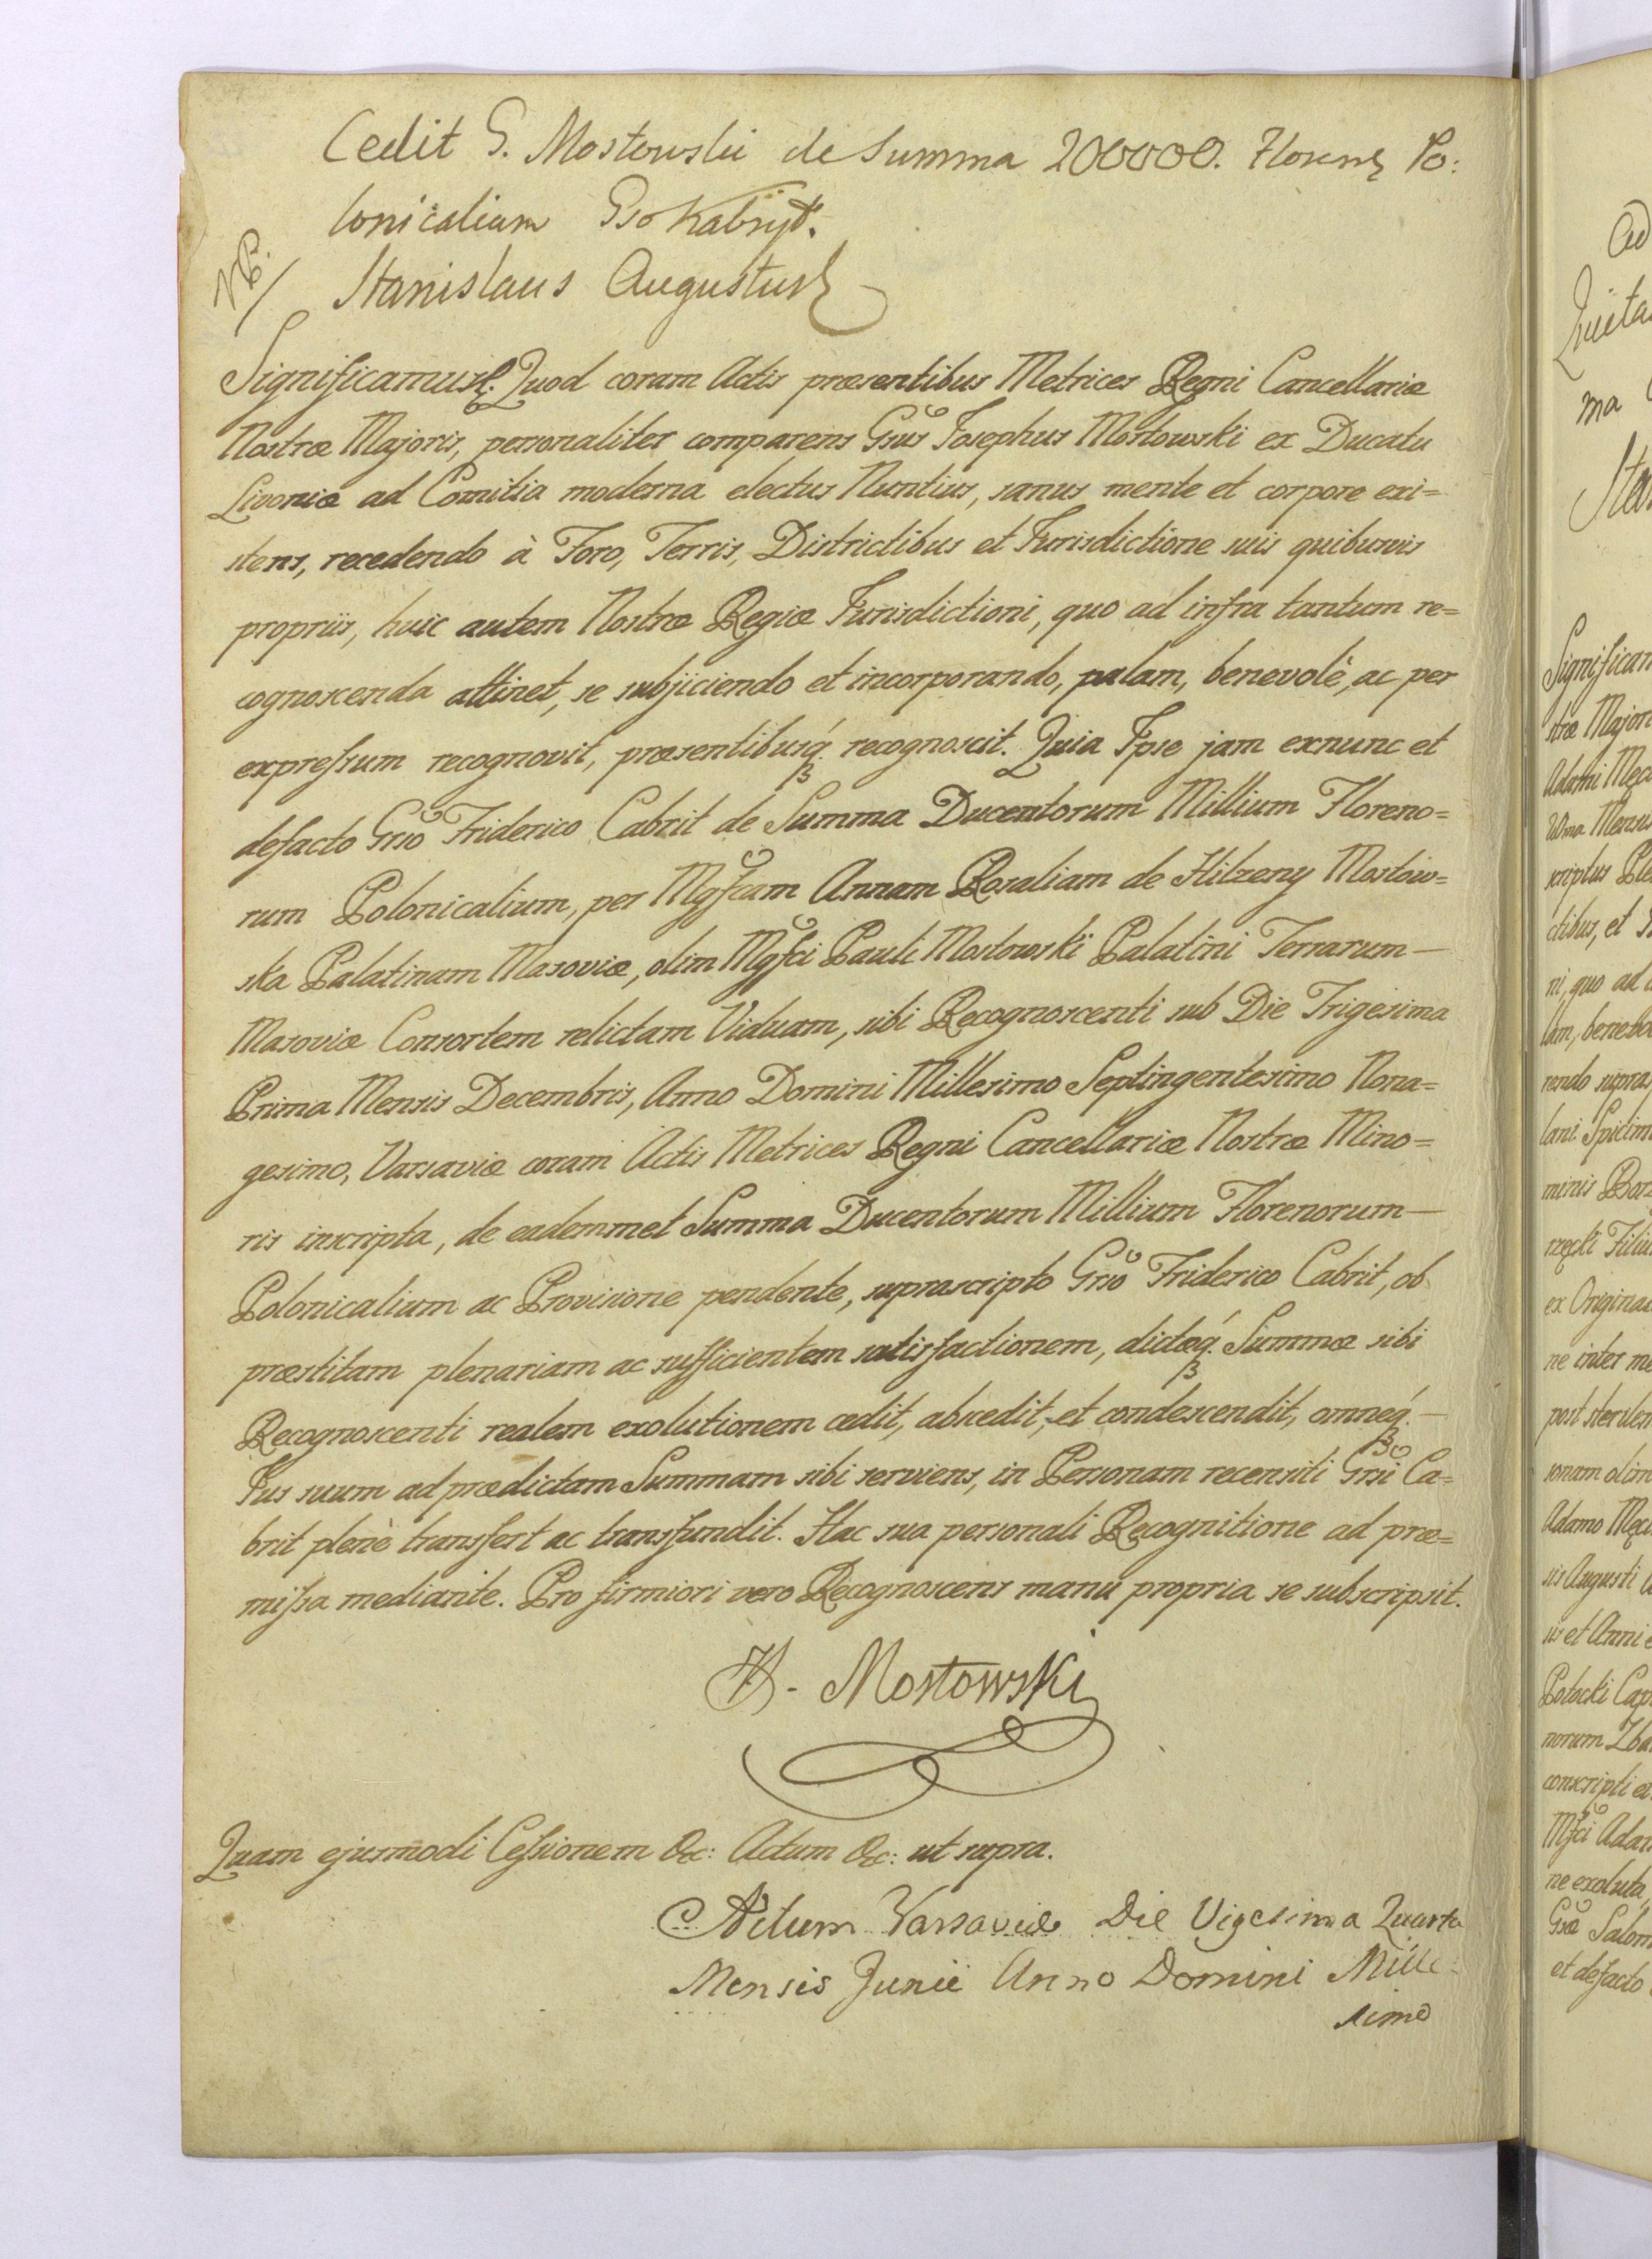 Cedit G. Mostowski de Summa 200000. Floren. Po:
lonicalium Gso Kabryt.
NB. / Stanislaus Augustus
Significamus &. Quod coram Actis præsentibus Metrices Regni Cancellariæ
Nostræ Majoris, personaliter comparens Gsus Josephus Mostowski ex Ducatu
Livoniæ ad Comitia moderna electus Nuntius, sanus mente et corpore exi=
stens, recedendo à Foro, Terris, Districtibus et Jurisdictione suis quibusvis
propriis, huic autem Nostræ Regiæ Jurisdictioni, quo ad infra tantum re=
cognoscenda attinet, se subjiciendo et incorporando, palam, benevolè, ac per
expreſsum recognovit, præsentibusq́ recognoscit. Quia Ipse jam exnunc et
defacto Grso Friderico Cabrit de Summa Ducentorum Millium Floreno=
rum Polonicalium, per Mgfcam Annam Rosaliam de Hilzeny Mostow=
ska Palatinam Masoviæ, olim Mgfci Pauli Mostowski Palatini Terrarum —
Masoviæ Consortem relictam Viduam, sibi Recognoscenti sub Die Trigesima
Prima Mensis Decembris, Anno Domini Millesimo Septingentesimo Nona=
gesimo, Varsaviæ coram Actis Metrices Regni Cancellariæ Nostræ Mino=
ris inscripta, de eademmet Summa Ducentorum Millium Florenorum —
Polonicalium ac Provisione pendente, suprascripto Grso Friderico Cabrit, ob
præstitam plenariam ac sufficientem satisfactionem, dictæq́. Summæ sibi
Recognoscenti realem exolutionem cedit, abscedit, et condescendit, omneq́. —
Jus suum ad prædictam Summam sibi serviens, in Personam recensiti Grsi Ca=
brit plenè transfert ac transfundit. Hac sua personali Recognitione ad præ=
miſsa mediante. Pro firmiori vero Recognoscens manu propria se subscripsit.
J. Mostowski
Quam ejusmodi Ceſsionem &c: Actum &c: ut supra.
Actum Varsaviæ Die Vigesima Quarta
Mensis Junii Anno Domini Mille=
simo
Significam
stræ Major
Adami Męci
Mensis
ctibus, et
ni, quo ad
lam, benevo
rendo supra
minis
rzęcki Filiu
ex Origina
ne inter me
post sterilem
sonam olim
Adamo Męci
sis Augusti
is et Anni
Potocki Cap
norum Zba
conscripti
Mfci Adam
ne exoluta,
et defacto